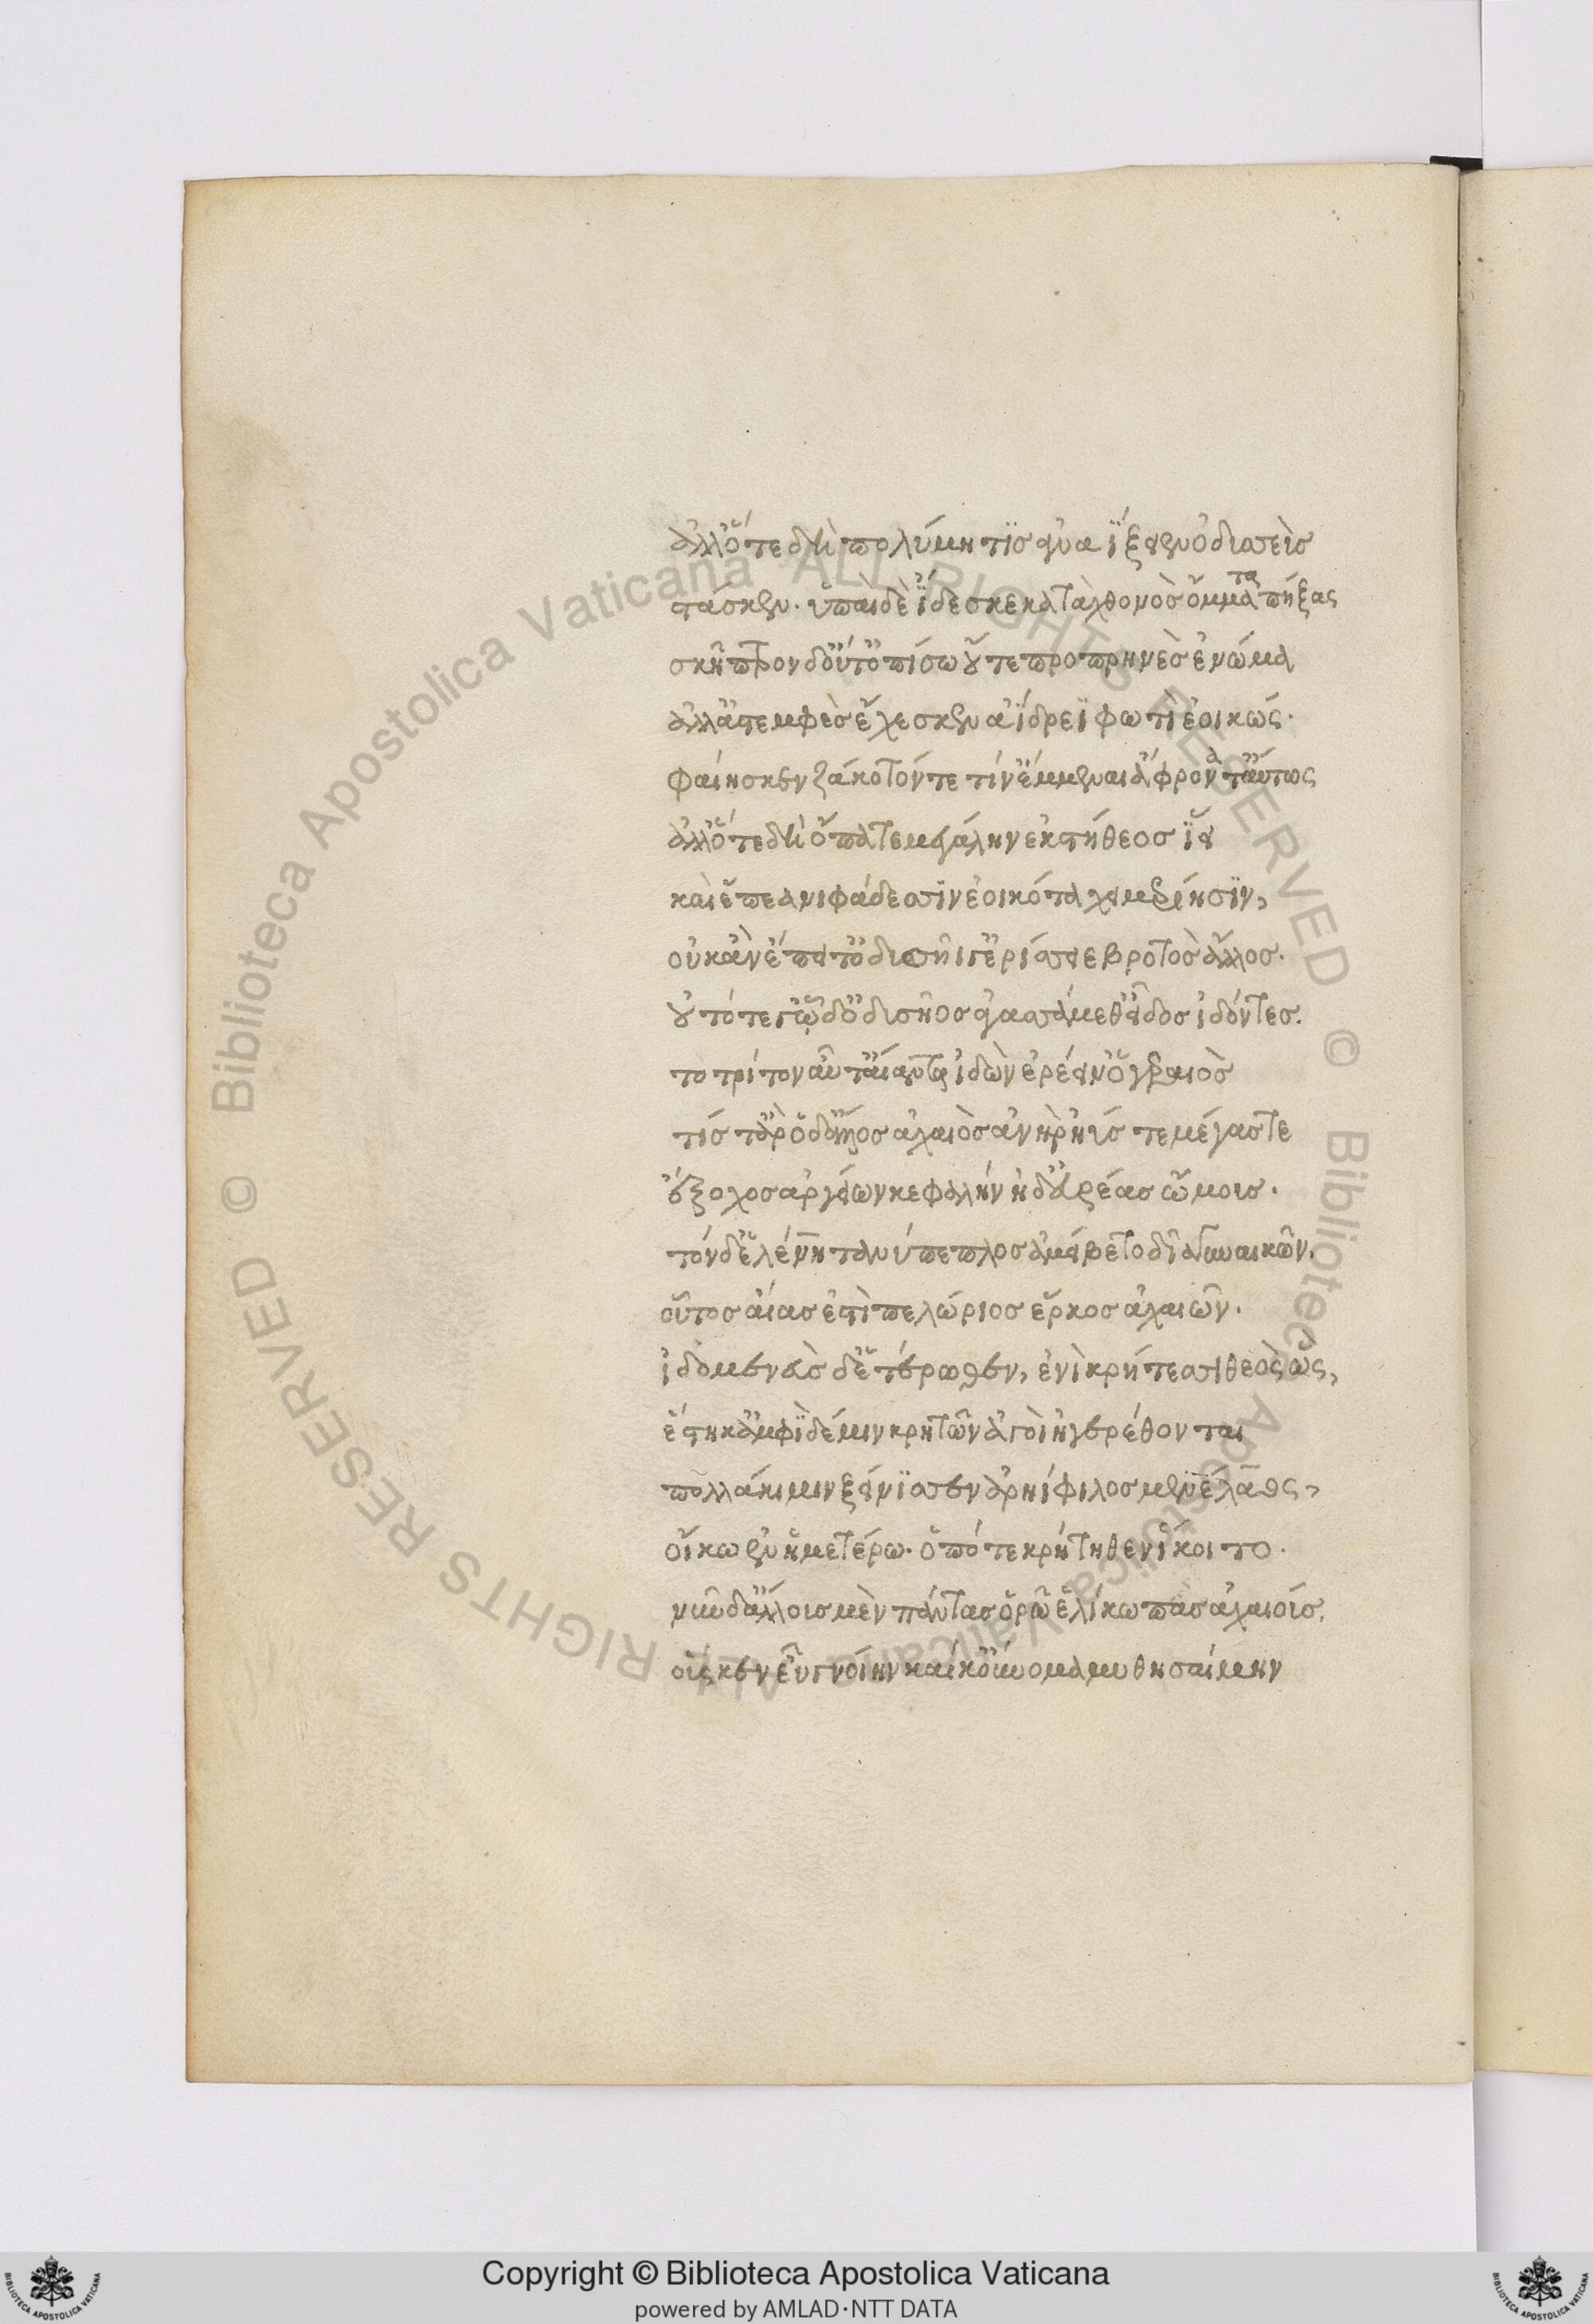 ἀλλ' ὅτε δὴ πολύμητις ἀναΐξειεν ὀδυσσεὺς
στάσκεν. ὑπαὶ δὲ ἴδεσκε κατὰ χθονὸς ὄμματα πήξας
σκῆπτρον δ' οὔτ' ὀπίσω οὔτε προπρηνὲς ἐνώμα
ἀλλ' ἀστεμφὲς ἔχεσκεν ἀΐδρεϊ φωτὶ ἐοικώς.
φαίης κεν ζάκοτόν τέ τιν' ἔμμεναι ἄφρονά τ' αὔτως
ἀλλ' ὅτε δὴ ὄπα τε μεγάλην ἐκ στήθεος ἵει
καὶ ἔπεα νιφάδεσσιν ἐοικότα χειμερίησιν,
οὐκ ἂν ἔπειτ' ὀδυσῆί γ' ἐρίσσειε βροτὸς ἄλλος.
οὐ τότε γ' ὧδ' ὀδυσῆος ἀγασσάμεθ' εἶδος ἰδόντες.
τὸ τρίτον αὖτ' αἴαντα ἰδὼν ἐρέειν' ὁ γεραιὸς
τίς τ' ἂρ ὅδ' ἄλλος ἀχαιὸς ἀνὴρ ἠΰς τε μέγας τε
ἔξοχος ἀργείων κεφαλὴν ἠδ' εὐρέας ὤμοις.
τὸν δ' ἑλένη τανύπεπλος ἀμείβετο δῖα γυναικῶν.
οὗτος αἴας ἐστὶ πελώριος ἕρκος ἀχαιῶν.
ἰδομενεὺς δ' ἑτέρωθεν, ἐνὶ κρήτεσσι θεὸς ὣς,
ἕστηκ' ἀμφὶ δέ μιν κρητῶν ἀγοὶ ἠγερέθονται
πολλάκι μιν ξείνισσεν ἀρηίφιλος μενέλαος,
οἴκω ἐν ἡμετέρω. ὁπότε κρήτηθεν ἵκοιτο.
νῦν δ' ἄλλους μὲν πάντας ὁρῶ ἑλίκωπας ἀχαιούς.
οὕς κεν ἐῢ γνοίην καί κ' οὔνομα μυθησαίμην
Copyright © Biblioteca Apostolica Vaticana
powered by AMLAD·NTT DATA